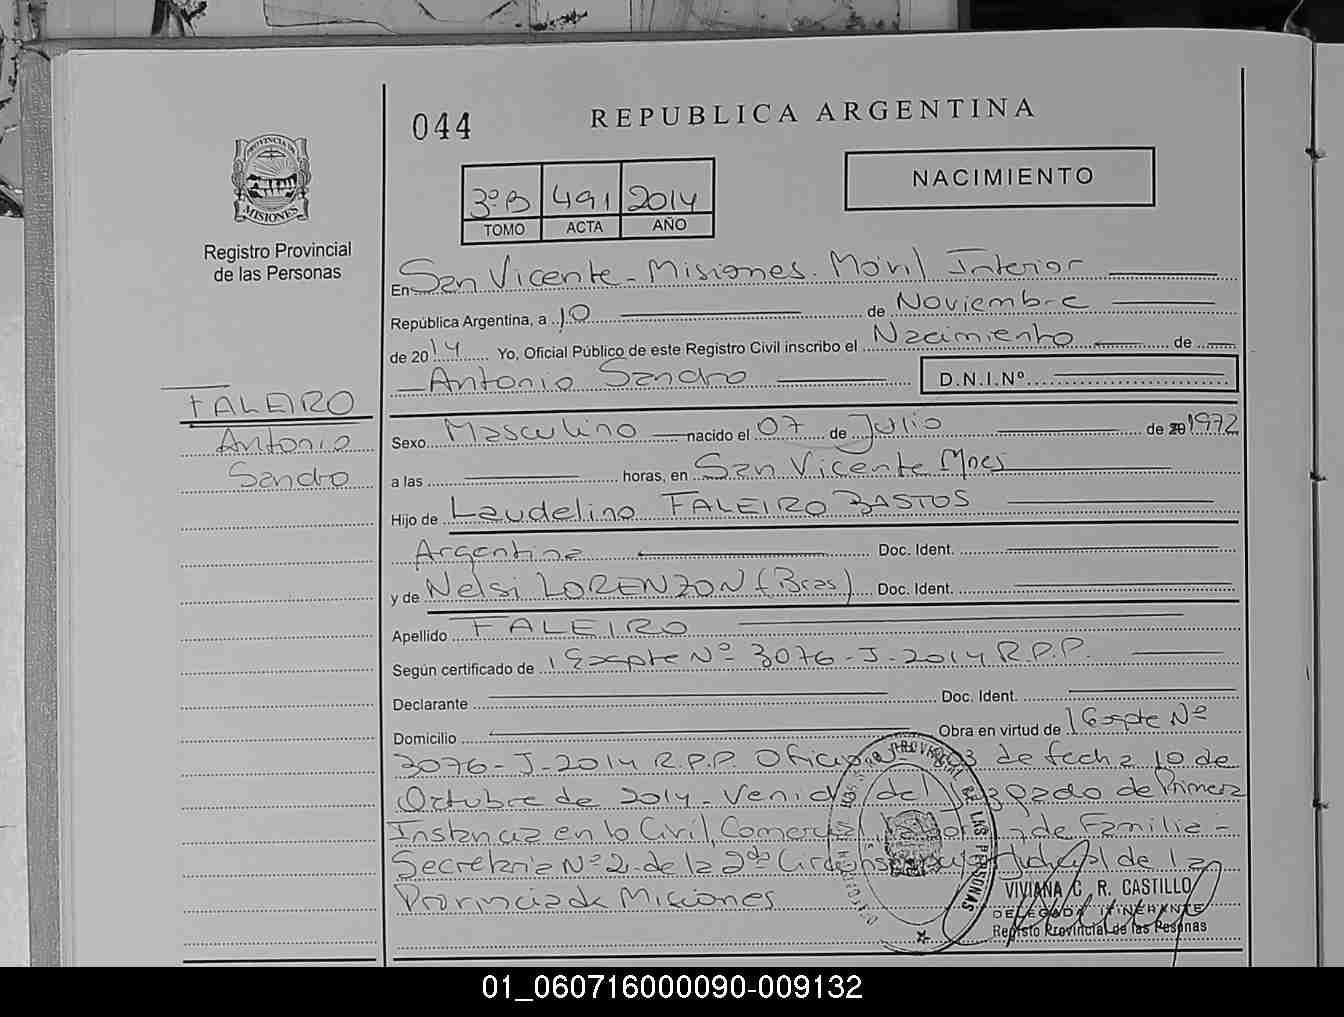 044
REPUBLICA ARGENTINA
PROVINCIA DE
MISIONES
Registro Provincial
de las Personas
3º B 491 2014
TOMO ACTA AÑO
NACIMIENTO
En San Vicente - Misiones. Móvil Interior
República Argentina, a 10 de Noviembre
de 2014 Yo, Oficial Público de este Registro Civil inscribo el Nacimiento de
Antonio Sandro D.N.I.Nº
FALEIRO
Antonio
Sandro
Sexo Masculino nacido el 07 de Julio de 1972
a las horas, en San Vicente Mnes
Hijo de Laudelino FALEIRO BASTOS
Argentina Doc. Ident.
y de Nelsi LORENZON (Bras) Doc. Ident.
Apellido FALEIRO
Según certificado de Expte Nº 3076-J-2014 R.P.P.
Declarante Doc. Ident.
Domicilio Obra en virtud de Expte Nº
3076-J-2014 R.P.P. Oficio de fecha 10 de
Octubre de 2014 - Venido del Juzgado de Primera
Instancia en lo Civil, Comercial, de Familia -
Secretaria Nº 2 de la 2da Judicial de la
Provincia de Misiones
DE LAS PERSONAS
VIVIANA C. R. CASTILLO
DELEGADA ITINERANTE
Registo Provincial de las Pesonas
01_060716000090-009132